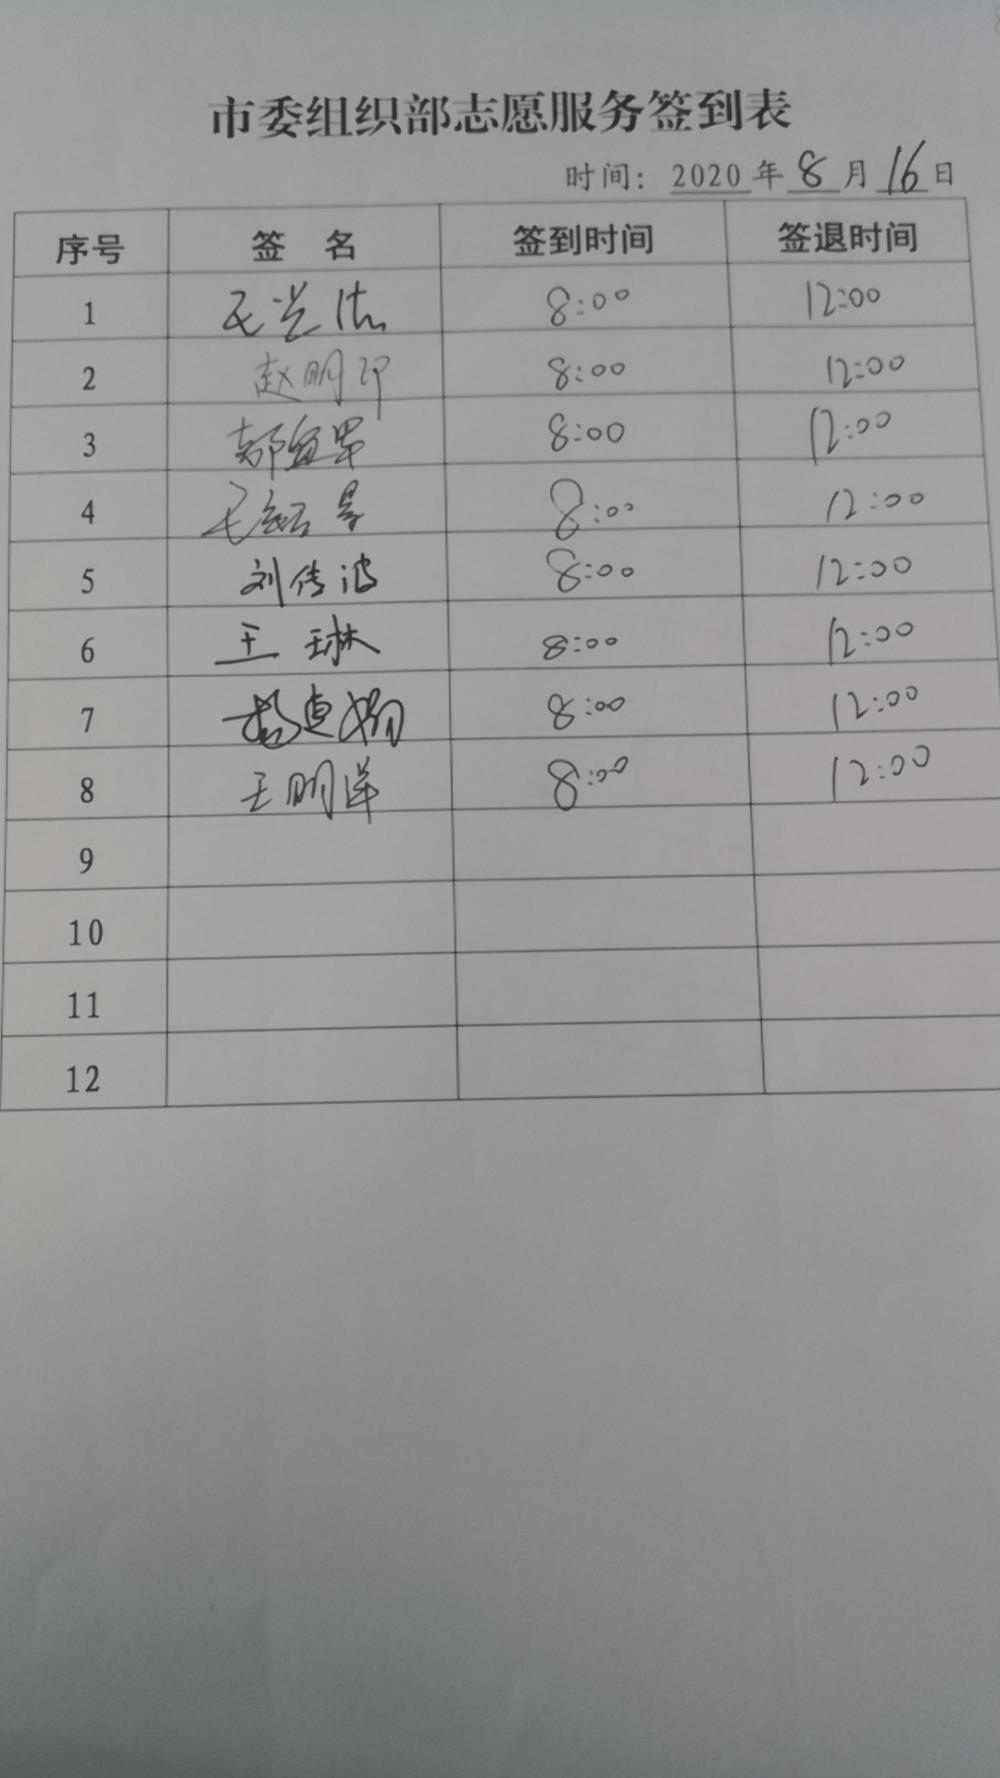 市委组织部志愿服务签到表
时间：2020年8月16日
序号 签 名 签到时间 签退时间
1 8:00 12:00
2 赵明 8:00 12:00
3 8:00 12:00
4 8:00 12:00
5 刘传波 8:00 12:00
6 王琳 8:00 12:00
7 杨 8:00 12:00
8 王明洋 8:00 12:00
9
10
11
12